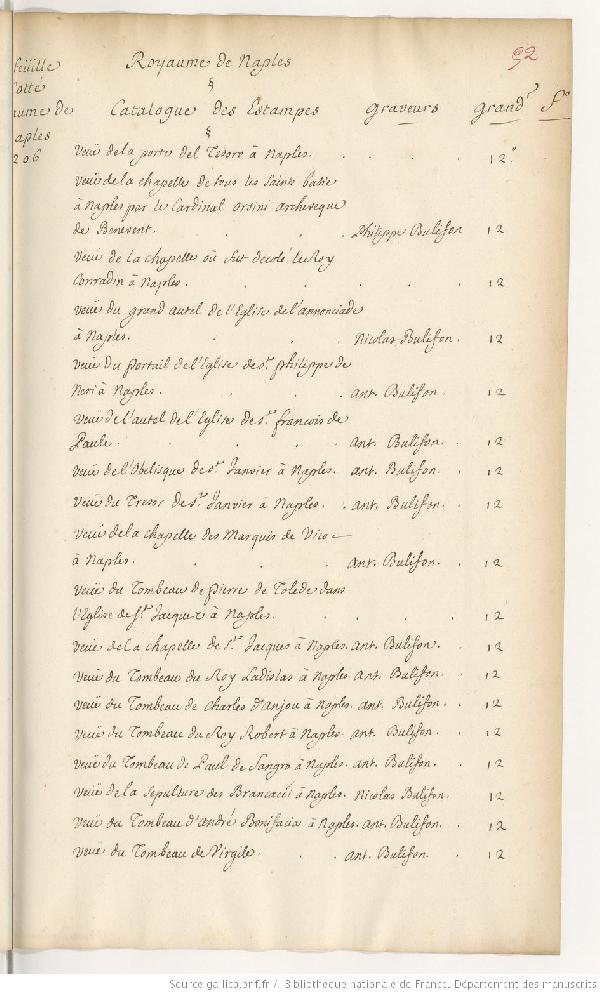 92
Royaume de Naples
feüille
cotté
§
Catalogue des Estampes Graveurs grandr fo
aume de
aples
206
§
Veüe de la porte del Tesoro à Naples. 12.o
Veüe de la chapelle de tous les Saints batie
à Naples par le Cardinal orsini archeveque
de Benevent. Philippe Bulifon 12
Veüe de la chapelle où fut decolé le Roy
Conradin à Naples. 12
Veüe du grand autel de l'Eglise de l'annonciade
à Naples. Nicolas Bulifon. 12
Veüe du portail de l'Eglise de st. philippe de
Neri à Naples. ant. Bulifon. 12
Veüe de l'autel de l'Eglise de st. francois de
Paule. ant. Bulifon. 12
Veüe de l'Obelisque de st. Janvier à Naples. ant. Bulifon. 12
Veüe du Tresor de st. Janvier à Naples. ant. Bulifon. 12
Veüe de la chapelle des Marquis de Vico
à Naples. ant. Bulifon. 12
Veüe du Tombeau de pierre de Tolede dans
l'Eglise de st. Jacques à Naples. 12
Veüe de la chapelle de st. Jacques à Naples. ant. Bulifon. 12
Veüe du Tombeau du Roy Ladislas à Naples. ant. Bulifon. 12
Veüe du Tombeau de Charles d'anjou à Naples. ant. Bulifon. 12
Veüe du Tombeau du Roy Robert à Naples. ant. Bulifon. 12
Veüe du Tombeau de Paul de Sangro à Naples. ant. Bulifon. 12
Veüe de la sepulture des Brancacci à Naples. Nicolas Bulifon. 12
Veüe du Tombeau d'andré Bonifacia à Naples. ant. Bulifon. 12
Veüe du Tombeau de Virgile. ant. Bulifon. 12
Source gallica.bnf.fr / Bibliothèque nationale de France. Département des manuscrits